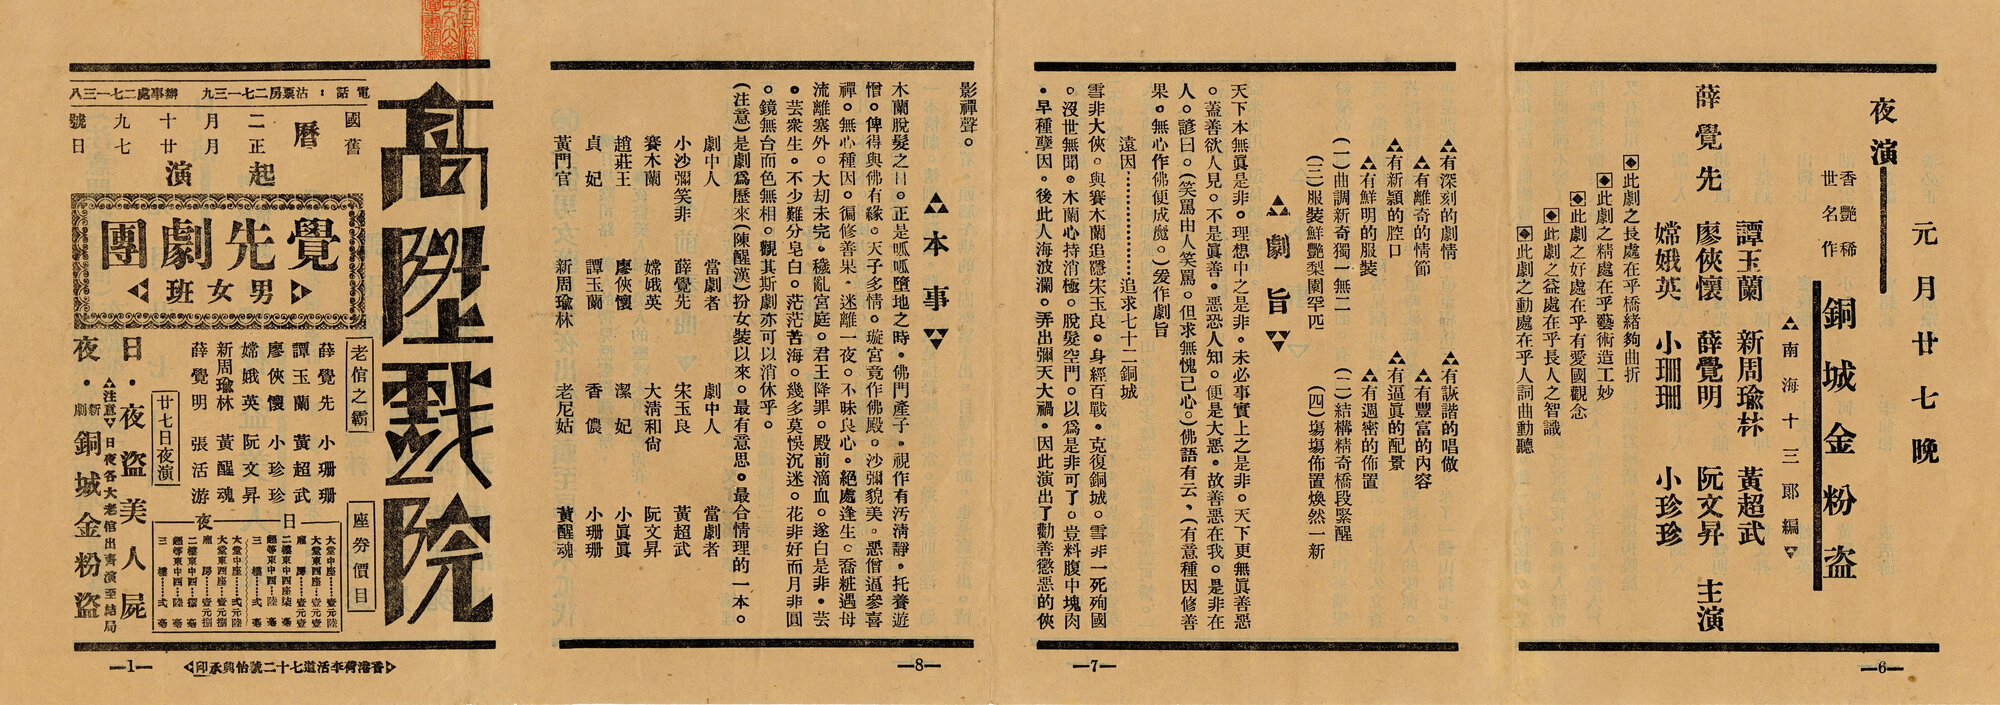 元月廿七晚
夜演
香艷稀世名作
銅城金粉盗
▵南海十三郞編▿
譚玉蘭 新周瑜林 黃超武
薛覺先 廖俠懷 薛覺明 阮文昇 主演
嫦娥英 小珊珊 小珍珍
◈此劇之長處在乎橋緒夠曲折
◈此劇之精處在乎藝術造工妙
◈此劇之好處在乎有愛國觀念
◈此劇之益處在乎長人之智識
◈此劇之動處在乎人詞曲動聽
—6—
▵▵有深刻的劇情 ▵▵有詼諧的唱做
▵▵有離奇的情節 ▵▵有豐富的內容
▵▵有新頴的腔口 ▵▵有逼眞的配景
▵▵有鮮明的服裝 ▵▵有週密的佈置
(一)曲調新奇獨一無二 (二)結構精奇橋段緊醒
(三)服裝鮮艷梨園罕匹 (四)塲塲佈置煥然一新
劇旨
天下本無眞是非。理想中之是非。未必事實上之是非。天下更無眞善惡
。蓋善欲人見。不是眞善。惡恐人知。便是大惡。故善惡在我。是非在
人。諺曰。(笑罵由人笑罵。但求無愧己心。)佛語有云、(有意種因修善
果。無心作佛便成魔。)爰作劇旨
遠因…………追求七十二銅城
雪非大俠。與賽木蘭追隱宋玉良。身經百戰。克復銅城。雪非一死殉國
。沒世無聞。木蘭心持消極。脫髮空門。以爲是非可了。豈料腹中塊肉
。早種孽因。後此人海波瀾。弄出彌天大禍。因此演出了勸善懲惡的俠
—7—
影禪聲。
本事
木蘭脫髮之日。正是呱呱墮地之時。佛門產子。視作有汚淸靜。托養遊
僧。俾得與佛有緣。天子多情。璇宮竟作佛殿。沙彌貌美。惡僧逼參喜
禪。無心種因。徧修善果。迷離一夜。不昧良心。絕處逢生。喬粧遇母
流離塞外。大劫未完。穢亂宮庭。君王降罪。殿前滴血。遂白是非。芸
。芸衆生。不少難分皂白。茫茫苦海。幾多莫悞沉迷。花非好而月非圓
。鏡無台而色無相。觀其斯劇亦可以消休乎。
(注意)是劇爲歷來(陳醒漢)扮女裝以來。最有意思。最合情理的一本。
劇中人 當劇者 劇中人 當劇者
小沙彌笑非 薛覺先 宋玉良 黃超武
賽木蘭 嫦娥英 大淸和尙 阮文昇
趙莊王 廖俠懷 潔妃 小眞眞
貞妃 譚玉蘭 香儂 小珊珊
黃門官 新周瑜林 老尼姑 黃醒魂
—8—
高陞戲院
電話：沽票房二七一三九 辦事處二七一三八
國曆二月十九號
舊曆正月廿七日
起演
覺先劇團
男女班
老倌之霸
薛覺先 小珊珊
譚玉蘭 黃超武
廖俠懷 小珍珍
嫦娥英 阮文昇
新周瑜林 黃醒魂
薛覺明 張活游
座券價目
日
大堂中座……壹元陸
大堂東西座……壹元壹
廂房……壹元壹
二樓東中西座柒毫
超等東中西…陸毫
三樓……弍毫
夜
大堂中座……弍元陸
大堂東西座…壹元捌
廂房……壹元捌
三樓……弍毫
廿七日夜演
日·夜盜美人屍
▵注意▿日夜各大老倌出齊演至結局
夜·新劇銅城金粉盜
香港荷李活道七十二號怡興承印
—1—